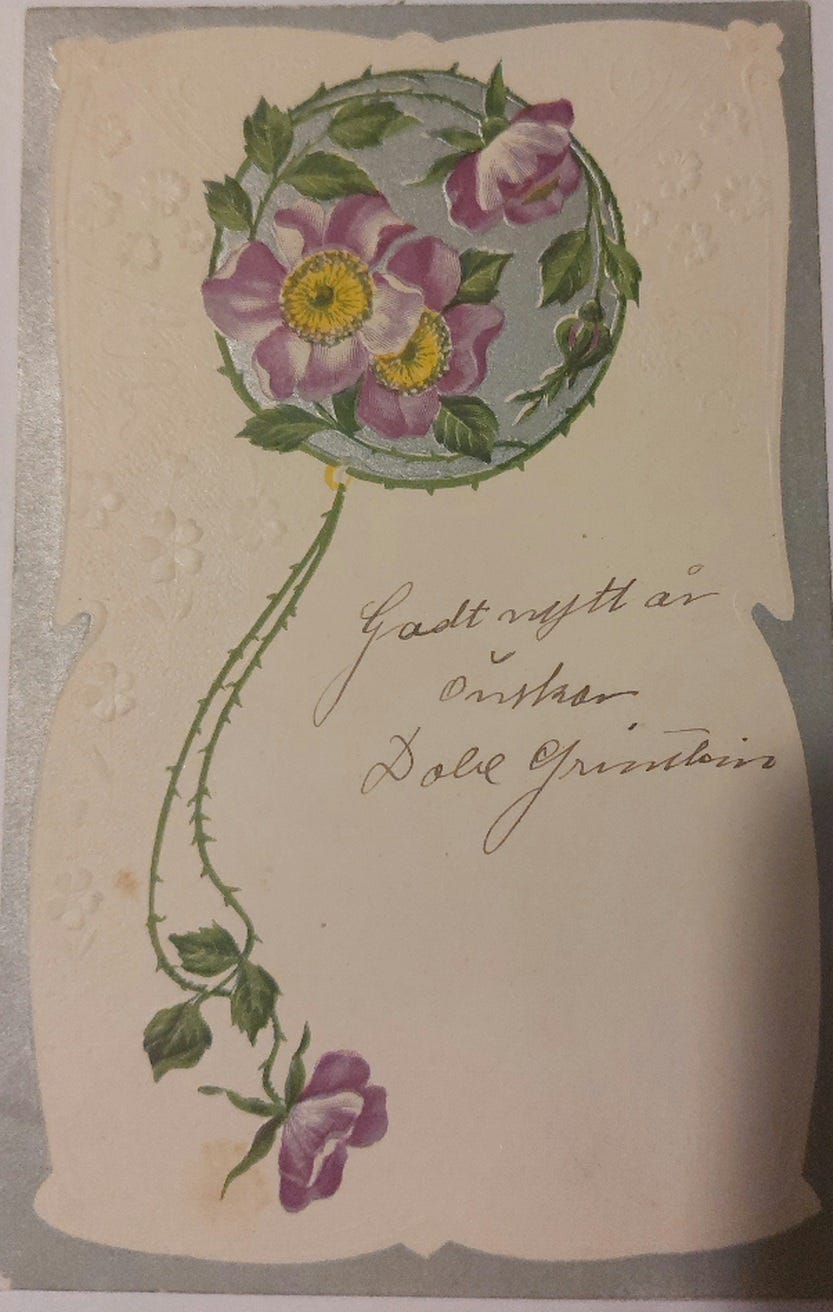 Godt nytt år
önskar
Dolle